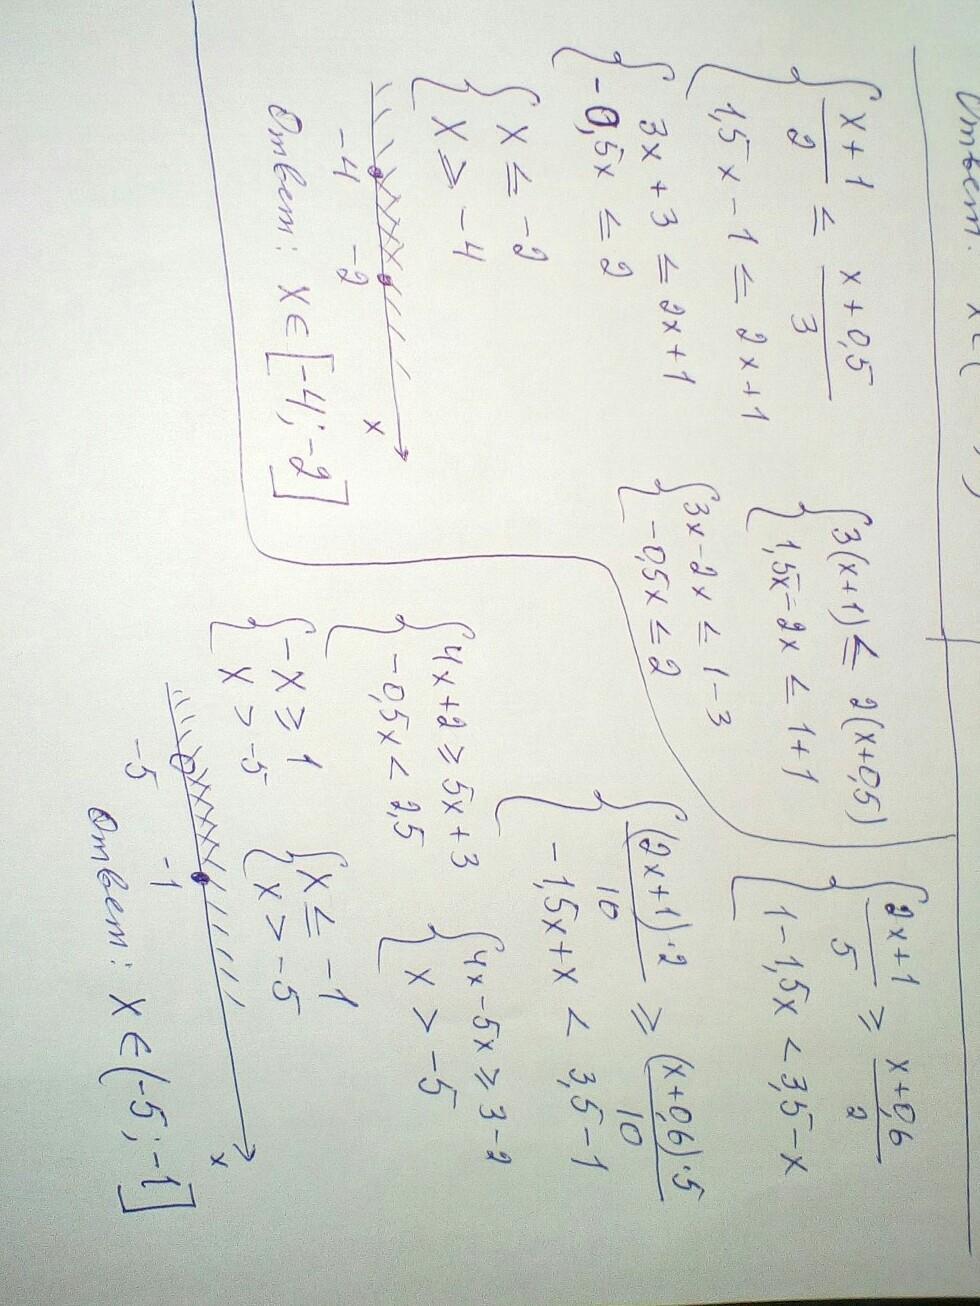 Ответ: x ∈ (
{ (x+1)/2 ≤ (x+0,5)/3
1,5x - 1 ≤ 2x+1
{ 3(x+1) ≤ 2(x+0,5)
1,5x - 2x ≤ 1+1
{ 3x + 3 ≤ 2x+1
-0,5x ≤ 2
{ 3x - 2x ≤ 1 - 3
-0,5x ≤ 2
{ x ≤ -2
x ≥ -4
-4 -2 x
Ответ: x ∈ [-4; -2]
{ (2x+1)/5 ≥ (x+0,6)/2
1 - 1,5x < 3,5 - x
{ (2x+1)·2/10 ≥ (x+0,6)·5/10
-1,5x + x < 3,5 - 1
{ 4x+2 ≥ 5x+3
-0,5x < 2,5
{ 4x - 5x ≥ 3 - 2
x > -5
{ -x ≥ 1
x > -5
{ x ≤ -1
x > -5
-5 -1 x
Ответ: x ∈ (-5; -1]